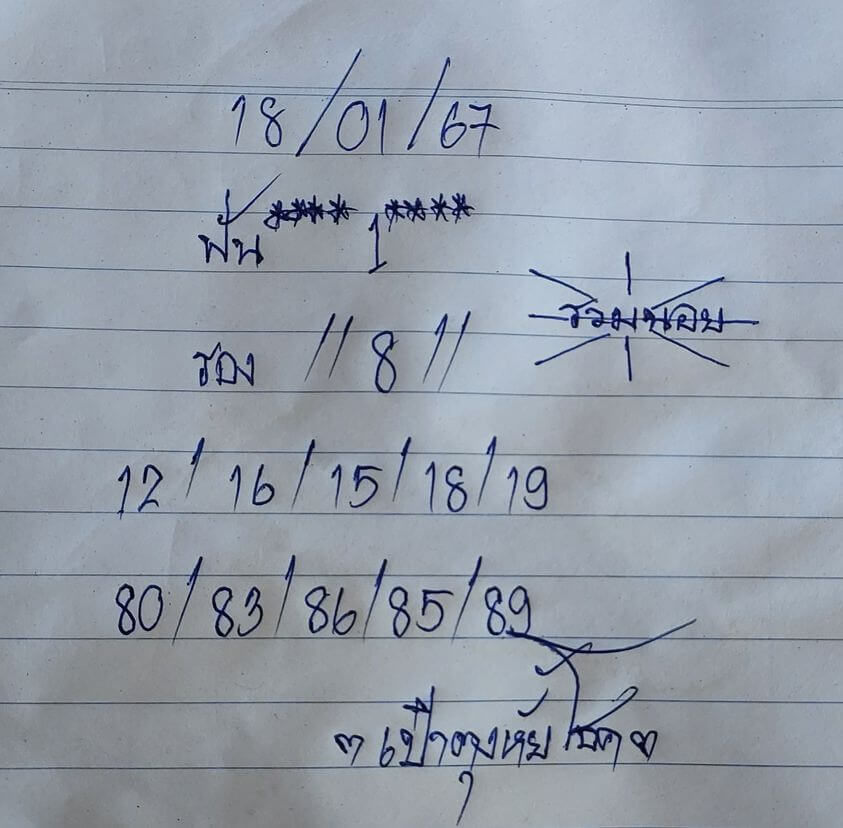 18/01/67
ฟัน **** 1 ****
รวมหนอย
รอง // 8 //
12/16/15/18/19
80/83/86/85/89
เป๋าตุงหั้ยโชค